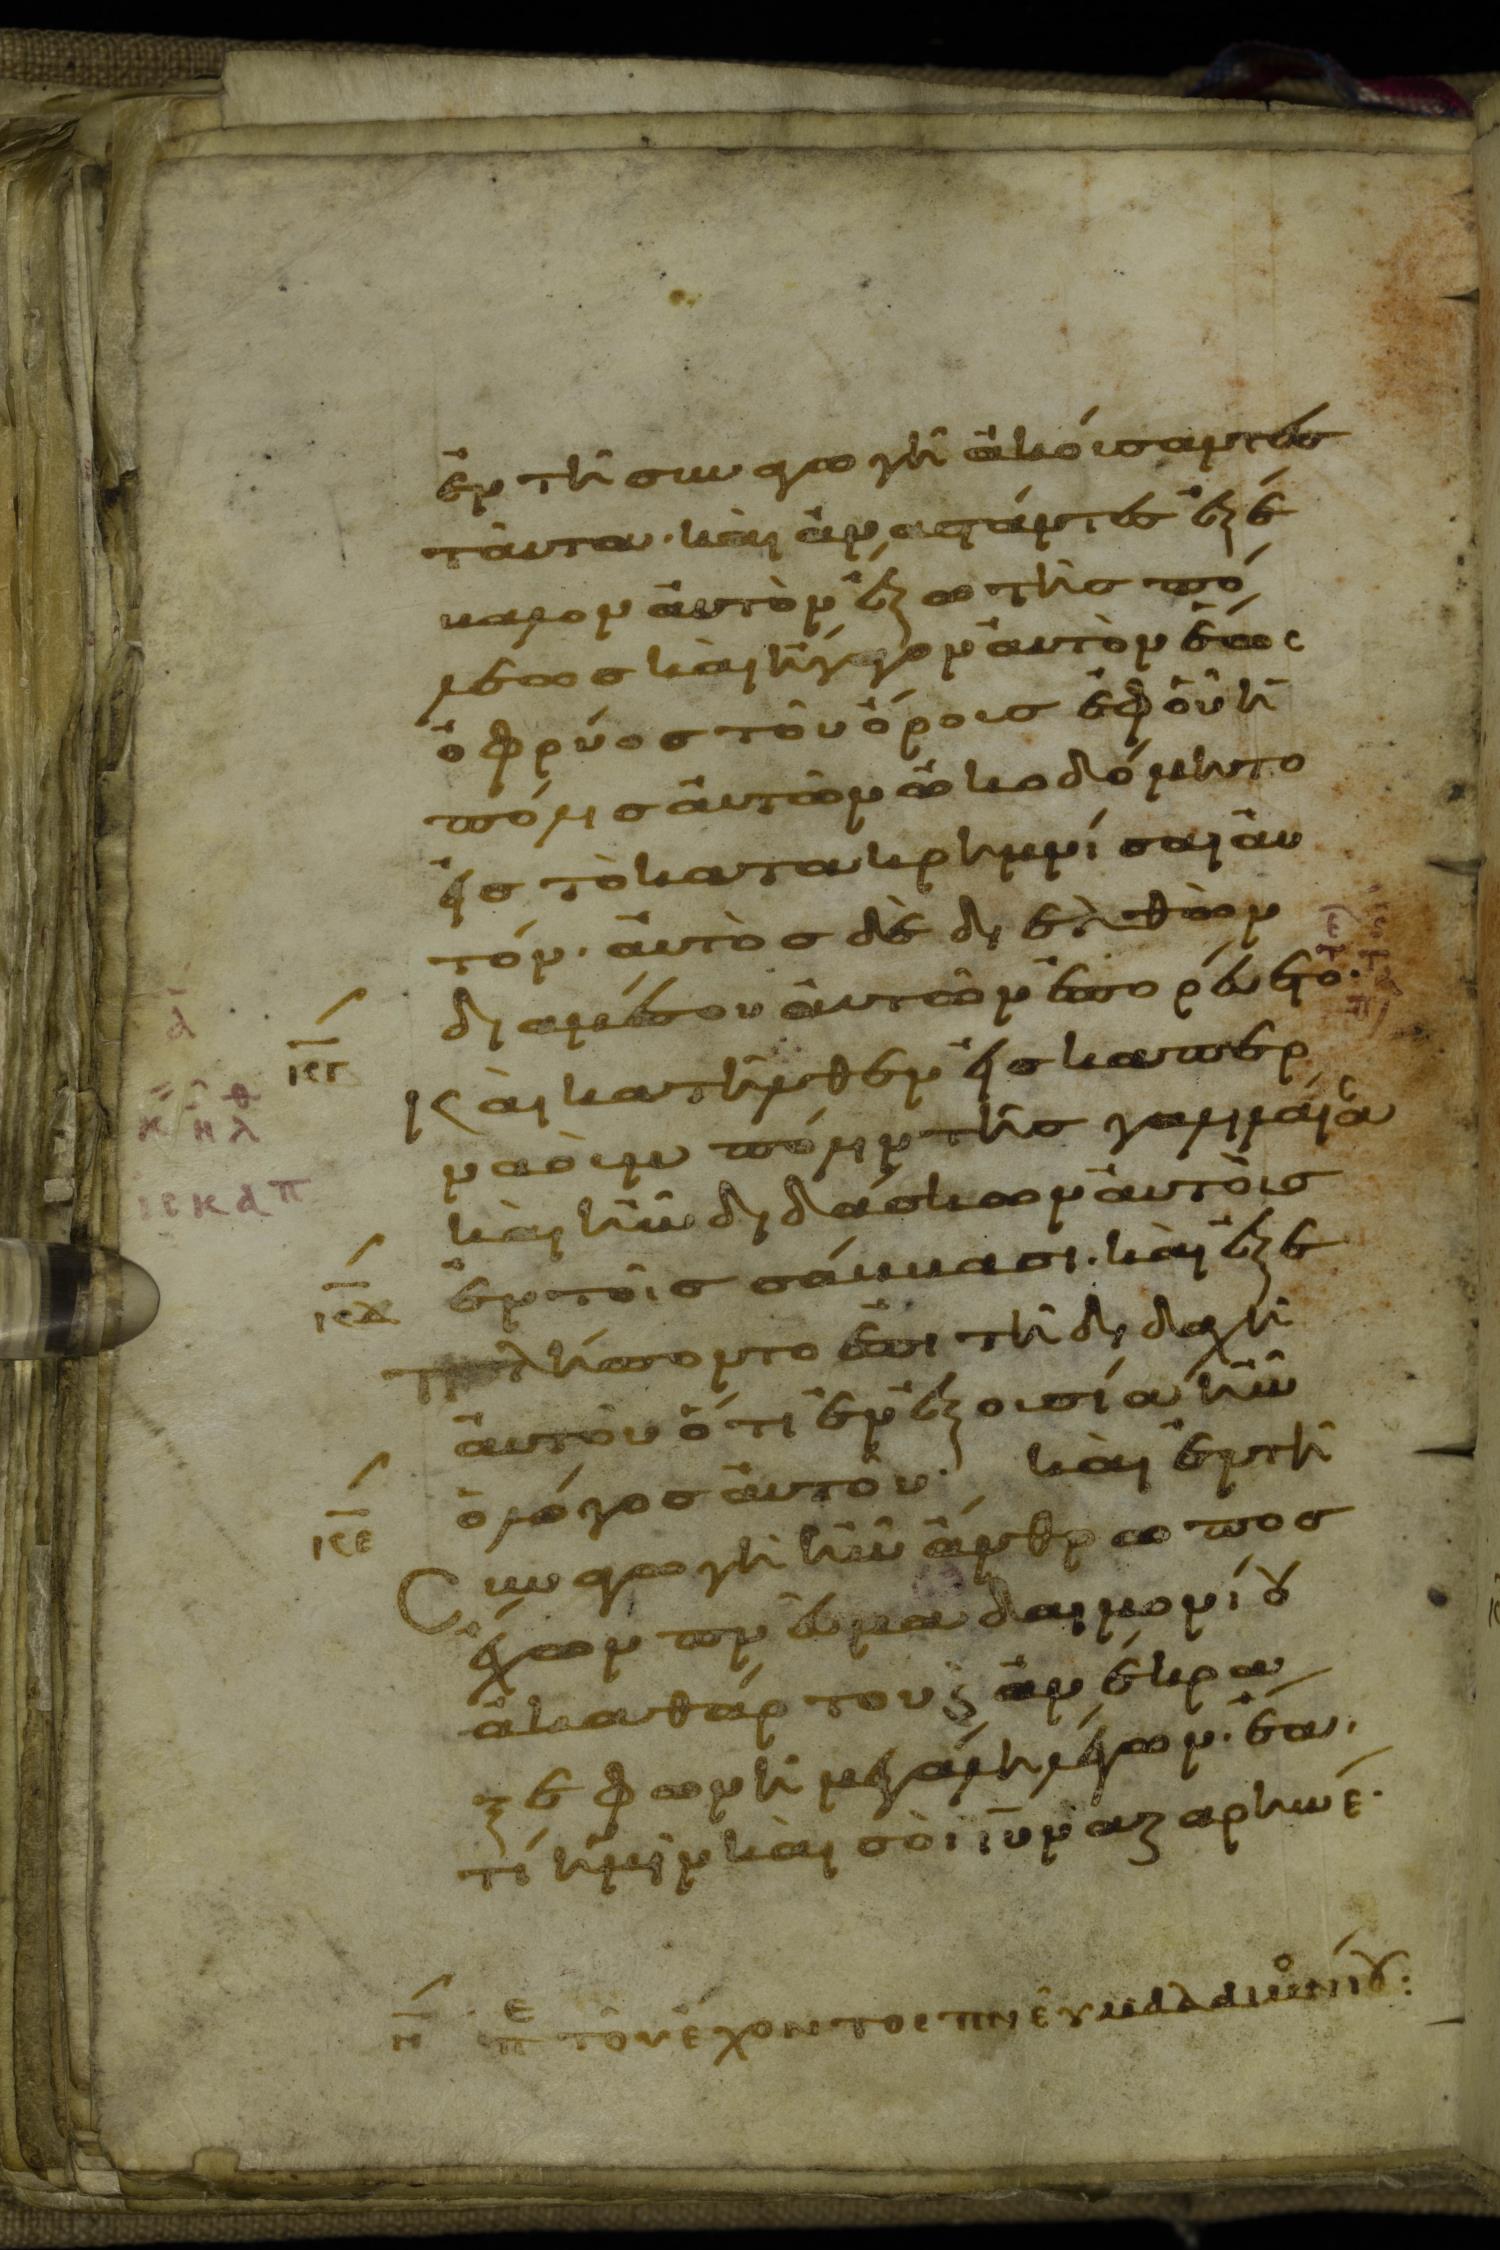 ἐν τῆ συναγωγῆ ἀκούσαντες
ταῦτα· καὶ ἀναστάντες ἐξέ
βαλον αὐτὸν ἔξω τῆς πό
λεως καὶ ἤγαγον αὐτὸν ἕως
ὀφρύος τοῦ ὄρους ἐφ οὗ ἡ
πόλις αὐτῶν ὠκοδόμητο
εἰς τὸ κατακρημνίσαι αὐ
τόν· αὐτὸς δὲ διελθὼν
διαμέσου αὐτῶν ἐπορεύετο·
Καὶ κατῆλθεν εἰς καπερ
ναοὺμ πόλιν τῆς γαλιλαίας
καὶ ἦν διδάσκων αὐτοὺς
ἐν τοῖς σάββασι· καὶ ἐξε
πλήσσοντο ἐπι τῆ διδαχῆ
αὐτοῦ ὅτι ἐν ἐξουσία ἦν
ὁ λόγος αὐτοῦ· καὶ ἐν τῆ
Συναγωγῆ ἦν ἄνθρωπος
ἔχων πνεῦμα δαιμονίȣ
ἀκαθάρτου καὶ ἀνέκρα
ξε φωνῆ μεγάλη λέγων· ἔα·
τί ἡμῖν καὶ σοὶ ιυ ναζαρηνέ·
η περὶ τοῦ ἔχοντος πνεῦμα δαιμονίȣ: